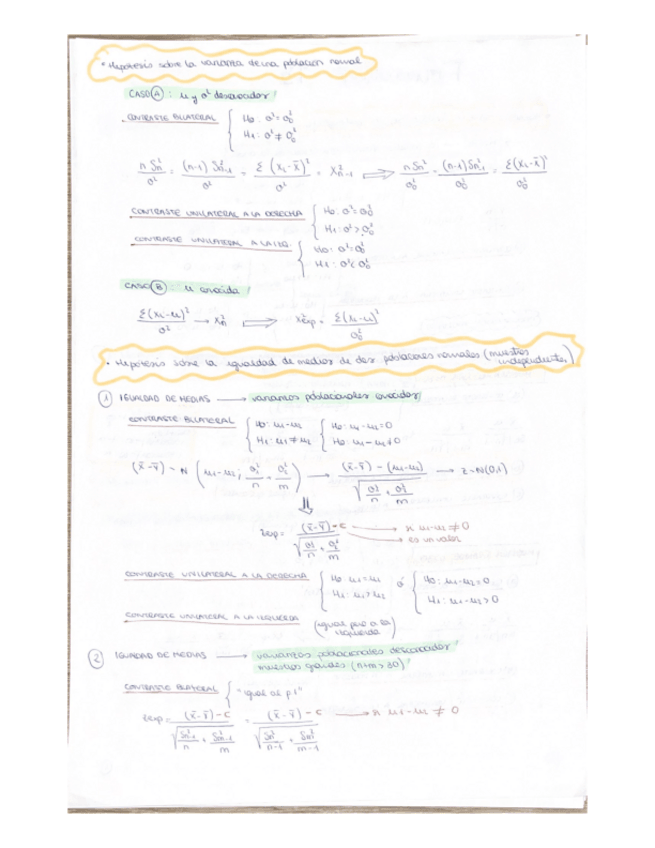 * Hipótesis sobre la varianza de una población normal
CASO A : μ y σ² desconocidas!
CONTRASTE BILATERAL { H₀: σ² = σ₀²
H₁: σ² ≠ σ₀²
n Sn² / σ² = (n-1) S²n-1 / σ² = Σ(xi - x̄)² / σ² = X²n-1 ⟹ n Sn² / σ₀² = (n-1) S²n-1 / σ₀² = Σ(xi - x̄)² / σ₀²
CONTRASTE UNILATERAL A LA DERECHA { H₀: σ² = σ₀²
H₁: σ² > σ₀²
CONTRASTE UNILATERAL A LA IZQ. { H₀: σ² = σ₀²
H₁: σ² < σ₀²
CASO B : μ conocida!
Σ(xi - μ)² / σ² → X²n ⟹ X²exp = Σ(xi - μ)² / σ₀²
· Hipótesis sobre la igualdad de medias de dos poblaciones normales (muestras
independientes)
1 IGUALDAD DE MEDIAS → varianzas poblacionales conocidas!
CONTRASTE BILATERAL { H₀: μ₁ = μ₂ { H₀: μ₁ - μ₂ = 0
H₁: μ₁ ≠ μ₂ H₀: μ₁ - μ₂ ≠ 0
(x̄ - ȳ) ~ N (μ₁ - μ₂; σ₁²/n + σ₂²/m) → (x̄ - ȳ) - (μ₁ - μ₂) / √(σ₁²/n + σ₂²/m) → Z ~ N(0,1)
⇓
Zexp = (x̄ - ȳ) - c / √(σ₁²/n + σ₂²/m) → si μ₁ - μ₂ ≠ 0
→ es un valor
CONTRASTE UNILATERAL A LA DERECHA { H₀: μ₁ = μ₂ ó { H₀: μ₁ - μ₂ = 0
H₁: μ₁ > μ₂ H₁: μ₁ - μ₂ > 0
CONTRASTE UNILATERAL A LA IZQUIERDA (igual pero a la
izquierda)
2 IGUALDAD DE MEDIAS → varianzas poblacionales desconocidas!
muestras grandes (n+m > 30)!
CONTRASTE BILATERAL { "igual al p.1"
Zexp = (x̄ - ȳ) - c / √(S²n-1/n + S²m-1/m) = (x̄ - ȳ) - c / √(Sn²/n-1 + Sm²/m-1) → si μ₁ - μ₂ ≠ 0